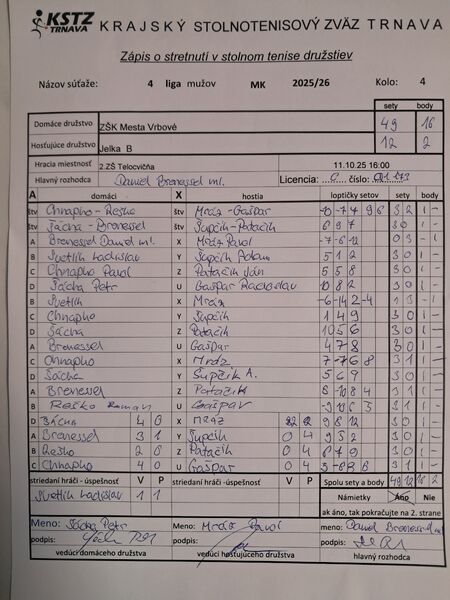 KSTZ TRNAVA KRAJSKÝ STOLNOTENISOVÝ ZVÄZ TRNAVA
Zápis o stretnutí v stolnom tenise družstiev
Názov súťaže: 4 liga mužov MK 2025/26 Kolo: 4
sety body
Domáce družstvo ZŠK Mesta Vrbové 49 16
Hosťujúce družstvo Jelka B 12 2
Hracia miestnosť 2.ZŠ Telocvičňa 11.10.25 16:00
Hlavný rozhodca Daniel Brenessel ml. Licencia: C číslo:
A domáci X hostia loptičky setov sety body
štv Chnapko - Reško štv Mráz - Gašpar 3 2 1 -
štv Sácha - Brenessel štv Šupčík - Patačik 6 9 7 3 0 1 -
A Brenessel Daniel ml. X Mráz Pavol -7 -6 -12 0 3 - 1
B Svetlík Ladislav Y Šupčík Adam 5 1 2 3 0 1 -
C Chnapko Pavol Z Patačik Ján 5 5 8 3 0 1 -
D Sácha Petr U Gašpar Radoslav 10 8 2 3 0 1 -
B Svetlík X Mráz 1 3 - 1
C Chnapko Y Šupčík 1 4 9 3 0 1 -
D Sácha Z Patačik 10 5 6 3 0 1 -
A Brenessel U Gašpar 4 7 8 3 0 1 -
C Chnapko X Mráz 7 -7 6 8 3 1 1 -
D Sácha Y Šupčík A. 5 6 9 3 0 1 -
A Brenessel Z Patačik 8 4 3 1 1 -
B Reško Roman U Gašpar 3 1 1 -
D Sácha 4 0 X Mráz 2 2 9 8 12 3 0 1 -
A Brenessel 3 1 Y Šupčík 0 4 9 5 2 3 0 1 -
B Reško 2 0 Z Patačik 0 4 6 7 9 3 0 1 -
C Chnapko 4 0 U Gašpar 0 4 3 1 1 -
striedaní hráči - úspešnosť V P striedaní hráči - úspešnosť V P Spolu sety a body 49 12 16 2
Svetlík Ladislav 1 1 Námietky Áno Nie
ak áno, tak pokračujte na 2. strane
Meno: Sácha Petr Meno: Mráz Pavol meno: Daniel Brenessel ml
podpis: podpis: podpis:
vedúci domáceho družstva vedúci hosťujúceho družstva hlavný rozhodca